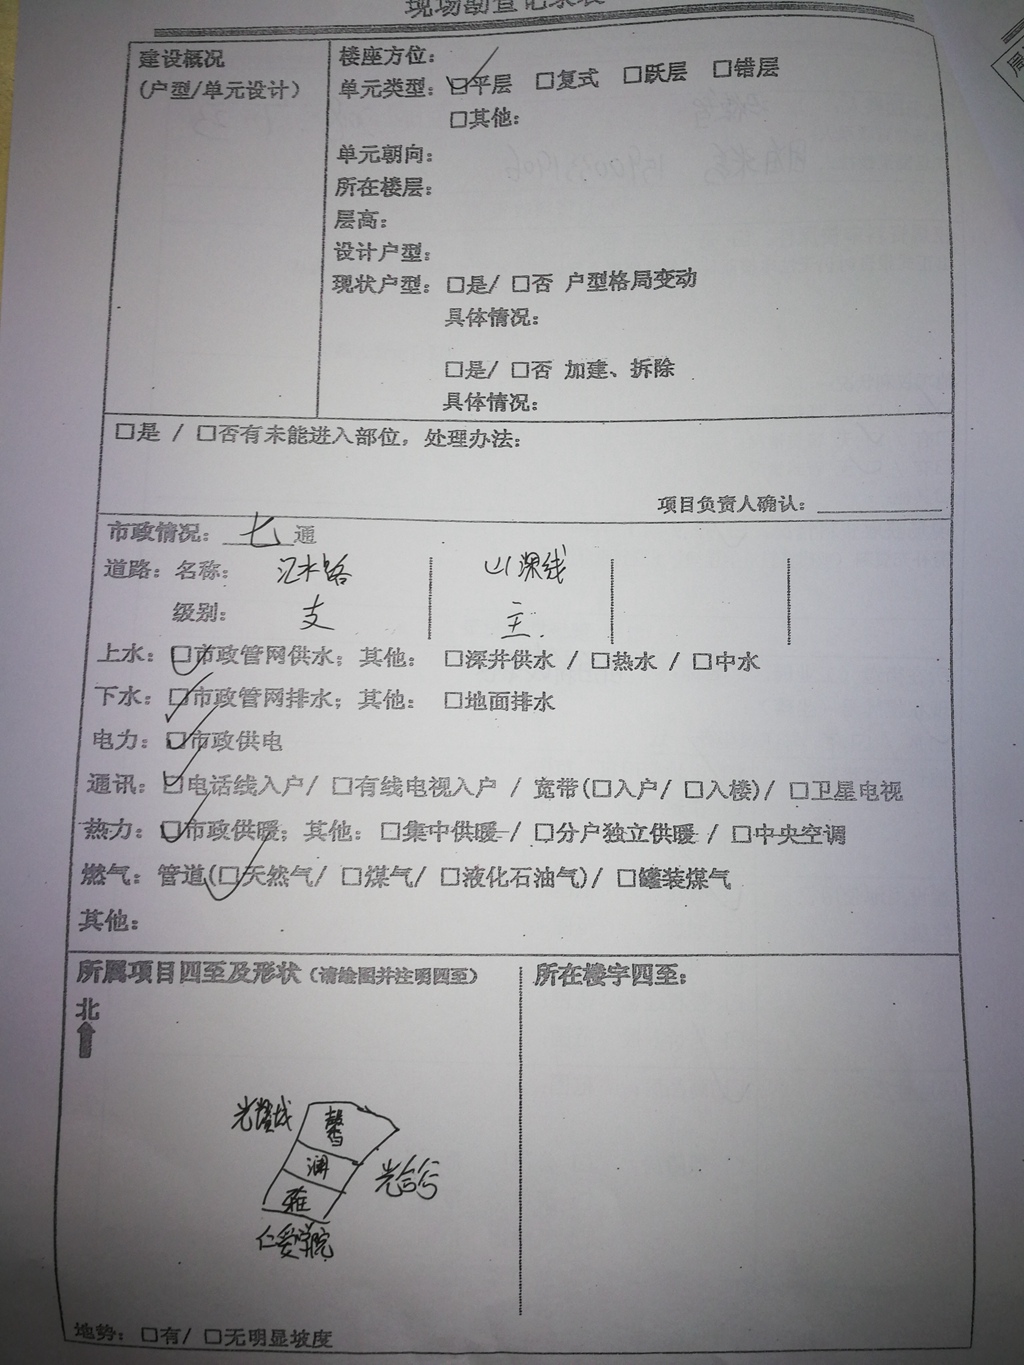 现场勘查记录表
建设概况
(户型/单元设计)
楼座方位:
单元类型: ☑平层 □复式 □跃层 □错层
□其他:
单元朝向:
所在楼层:
层高:
设计户型:
现状户型: □是/ □否 户型格局变动
具体情况:
□是/ □否 加建、拆除
具体情况:
□是 / □否有未能进入部位，处理办法:
项目负责人确认:
市政情况: 七 通
道路: 名称: 汇水路 山深线
级别: 支 主
上水: ☑市政管网供水; 其他: □深井供水 / □热水 / □中水
下水: ☑市政管网排水; 其他: □地面排水
电力: ☑市政供电
通讯: ☑电话线入户/ □有线电视入户 / 宽带(□入户/ □入楼)/ □卫星电视
热力: ☑市政供暖; 其他: □集中供暖 / □分户独立供暖 / □中央空调
燃气: 管道(☑天然气/ □煤气/ □液化石油气)/ □罐装煤气
其他:
所属项目四至及形状 (请绘图并注明四至)
所在楼宇四至:
北
光耀城
馨
澜
雅
光合谷
仁爱学院
地势: □有/ □无明显坡度